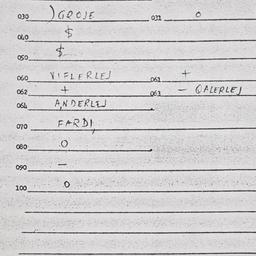 030 )GROJE 031 0
040 $
050 $
060 VIFLERLEJ 061 +
062 + 063 - GALERLEJ
064 ANDERLEJ
070 FARDI,
080 0
090 -
100 0